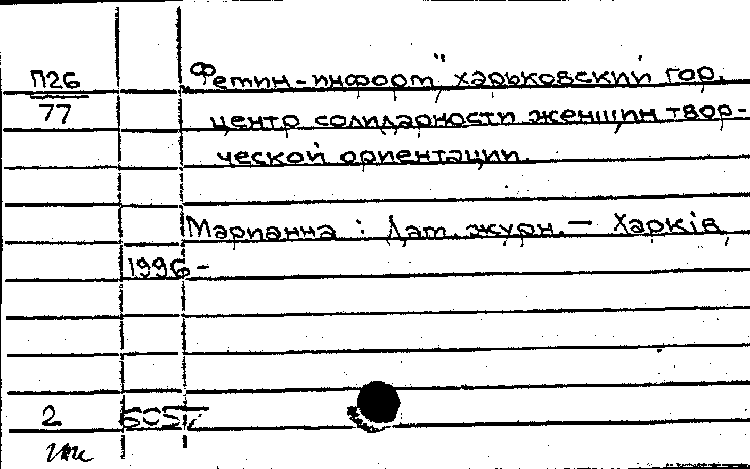 П26
77
"Фемин-информ", харьковский гор.
центр солидарности женщин твор-
ческой ориентации.
Марианна : Лит. журн. — Харків,
1996 -
2 6057